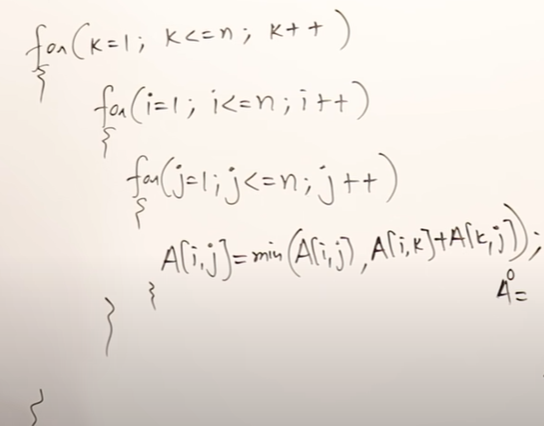 for(k=1; k<=n; k++)
{
for(i=1; i<=n; i++)
{
for(j=1; j<=n; j++)
{
A[i,j]=min(A[i,j], A[i,k]+A[k,j]);
A⁰=
}
}
}